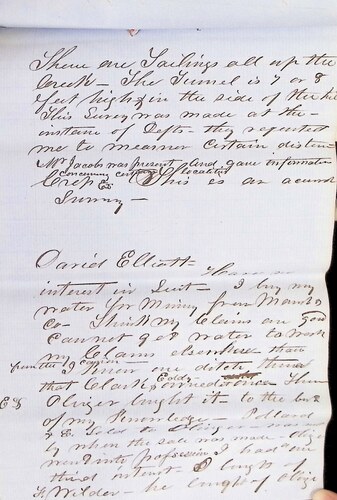 There are Tailings all up the
Creek - The Tunnel is 7 or 8
feet high & in the side of the hi
This Survey was made at the
instance of Defts - they requested
me to measure certain distan
Mr Jacobs was present and gave information
concerning certain localities
Cross Ex This is an accurat
Survey -
David Elliott - I have no
interest in Suit - I buy my
water for Mining from
Co - I think my Claims are good
cannot get water to work
my Claims elsewhere than
from the
I know one
that Clark & Eddy owned once
Olizer bought it to the best
of my Knowledge -
sold to Olizer - I was
by when the sale was made -
went into possession I had one
third interest - I bought of
F. Wilder - he bought of